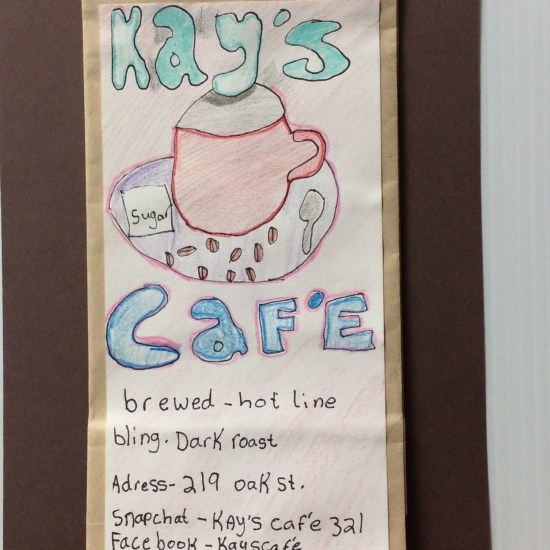 Kay's
Sugar
CaF'E
brewed - hot line
bling. Dark roast
Adress- 219 oak st.
Snapchat - KAy's caf'e 321
Facebook - Kayscaf'e